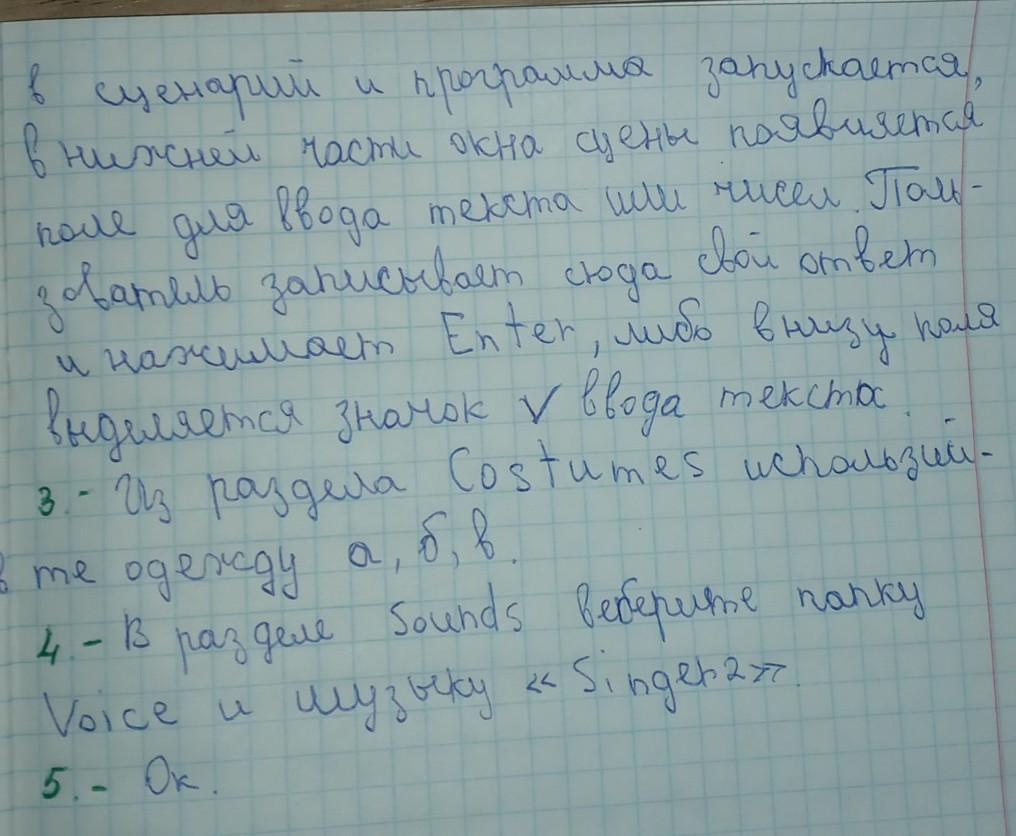 в сценарий и программа запускается,
в нижней части окна сцены появляется
поле для ввода текста или чисел. Поль-
зователь записывает сюда свой ответ
и нажимает Enter, либо внизу поля
выделяется значок √ ввода текста.
3.- Из раздела Costumes использий-
те одежду а, б, в.
4.- В разделе Sounds веберите папку
Voice и музыку «Singer2».
5.- Ок.